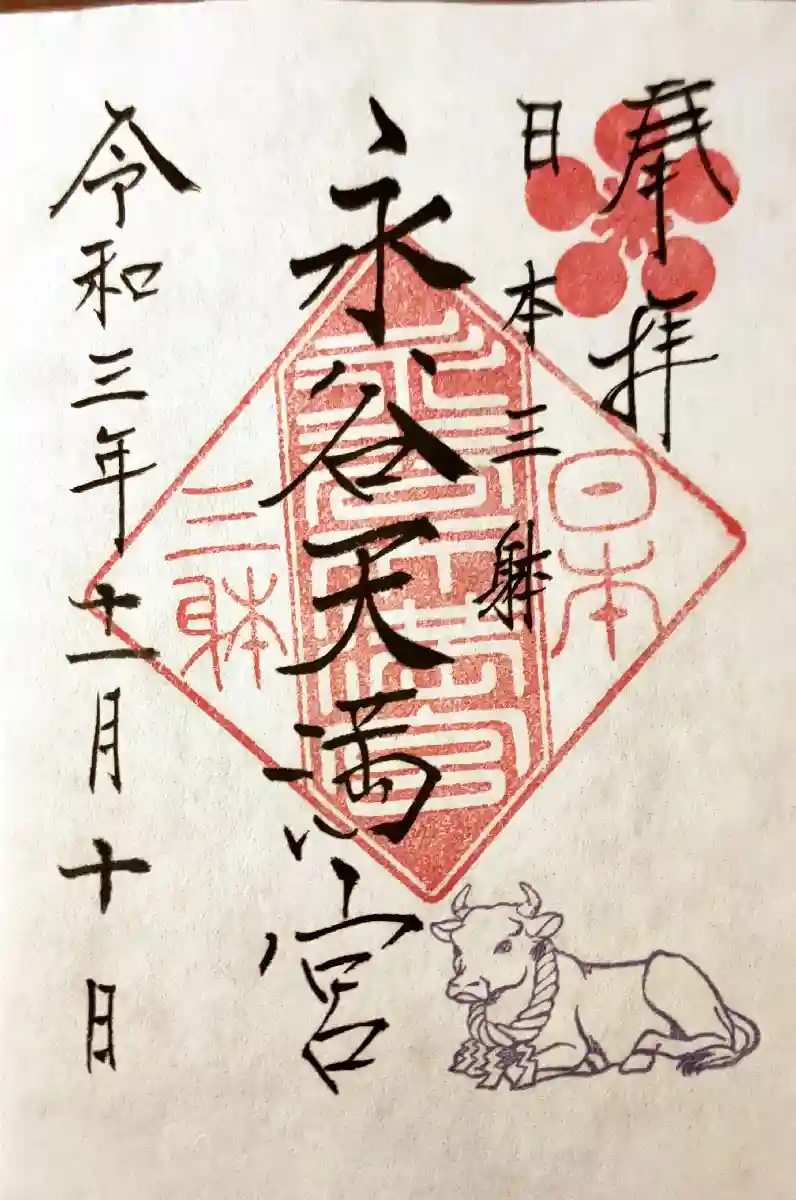 奉拝
日本三躰
永谷天満宮
令和三年十一月十日
日本
永谷天満宮
三躰